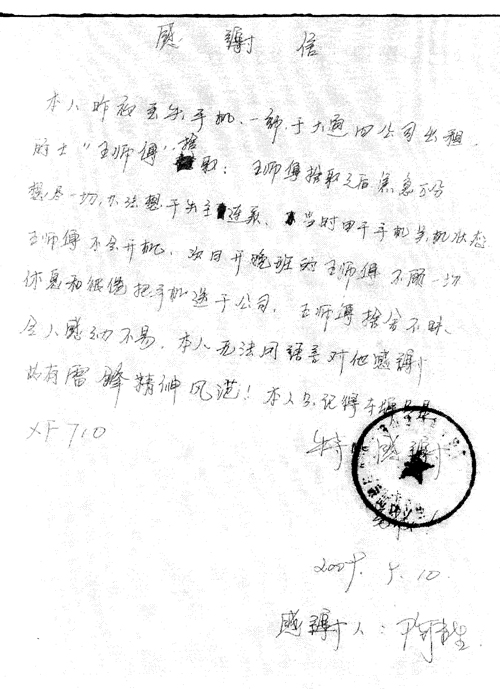 感谢信
本人昨夜丢失手机一部,于大通田公司出租
的士"王师傅"拾取:王师傅拾取之后焦急万分
想尽一切办法想于失主联系,当时由于手机关机状态
王师傅不会开机,次日开晚班的王师傅不顾一切
休息和疲倦把手机送于公司,王师傅拾金不昧、
令人感动不易,本人无法用语言对他感谢
故有雷锋精神风范!本人只记得车牌
XF710
特 感谢
2007. 10.
感谢人: